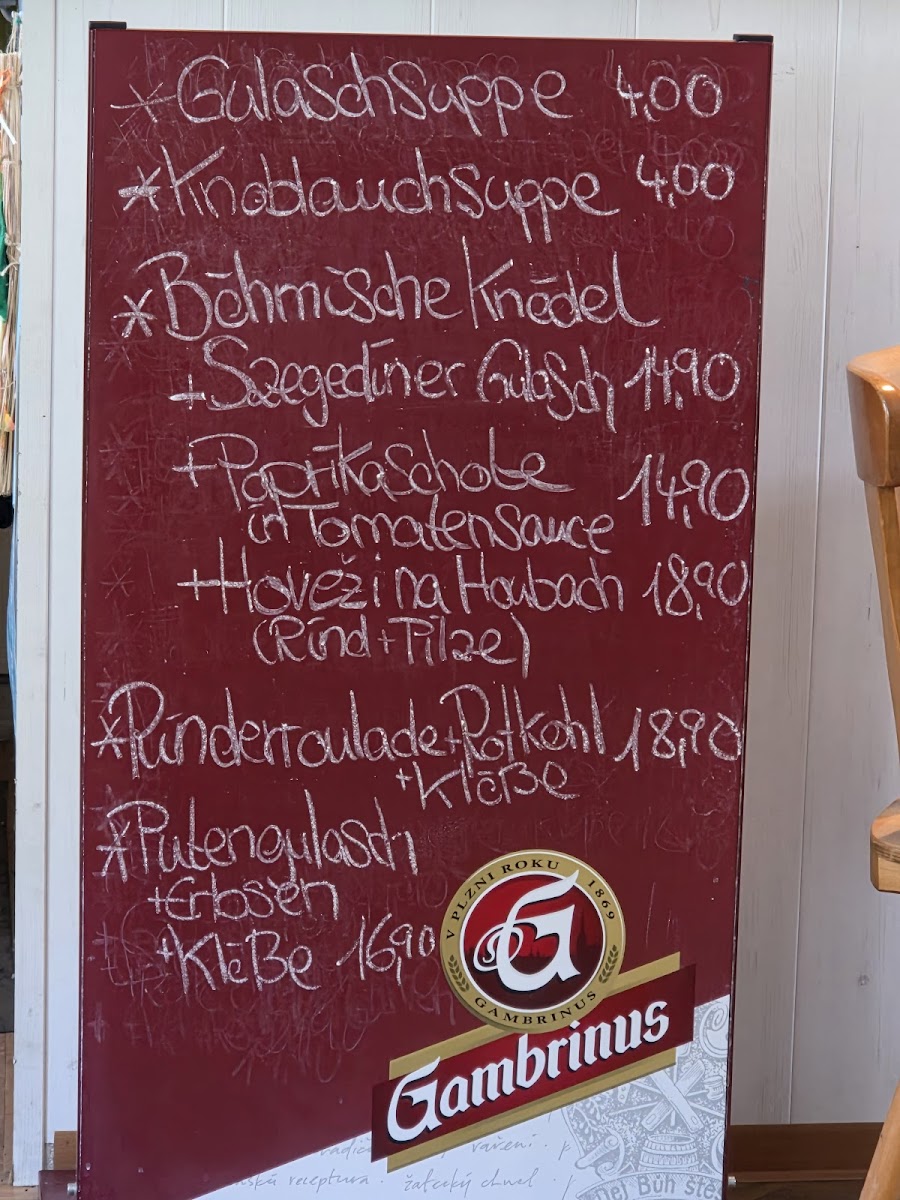 * Gulaschsuppe 4,00
* Knoblauchsuppe 4,00
* Böhmische Knödel
+ Szegediner Gulasch 14,90
+ Paprikaschote 14,90
in Tomatensauce
+ Hověži na Houbach 18,90
(Rind + Pilze)
* Rinderroulade + Rotkohl 18,90
+ Klöße
* Putengulasch
+ Erbsen
+ Klöße 16,90
V PLZNI ROKU 1869
G
GAMBRINUS
Gambrinus
vaření
receptura · žatecký chmel ·
Dej Bůh